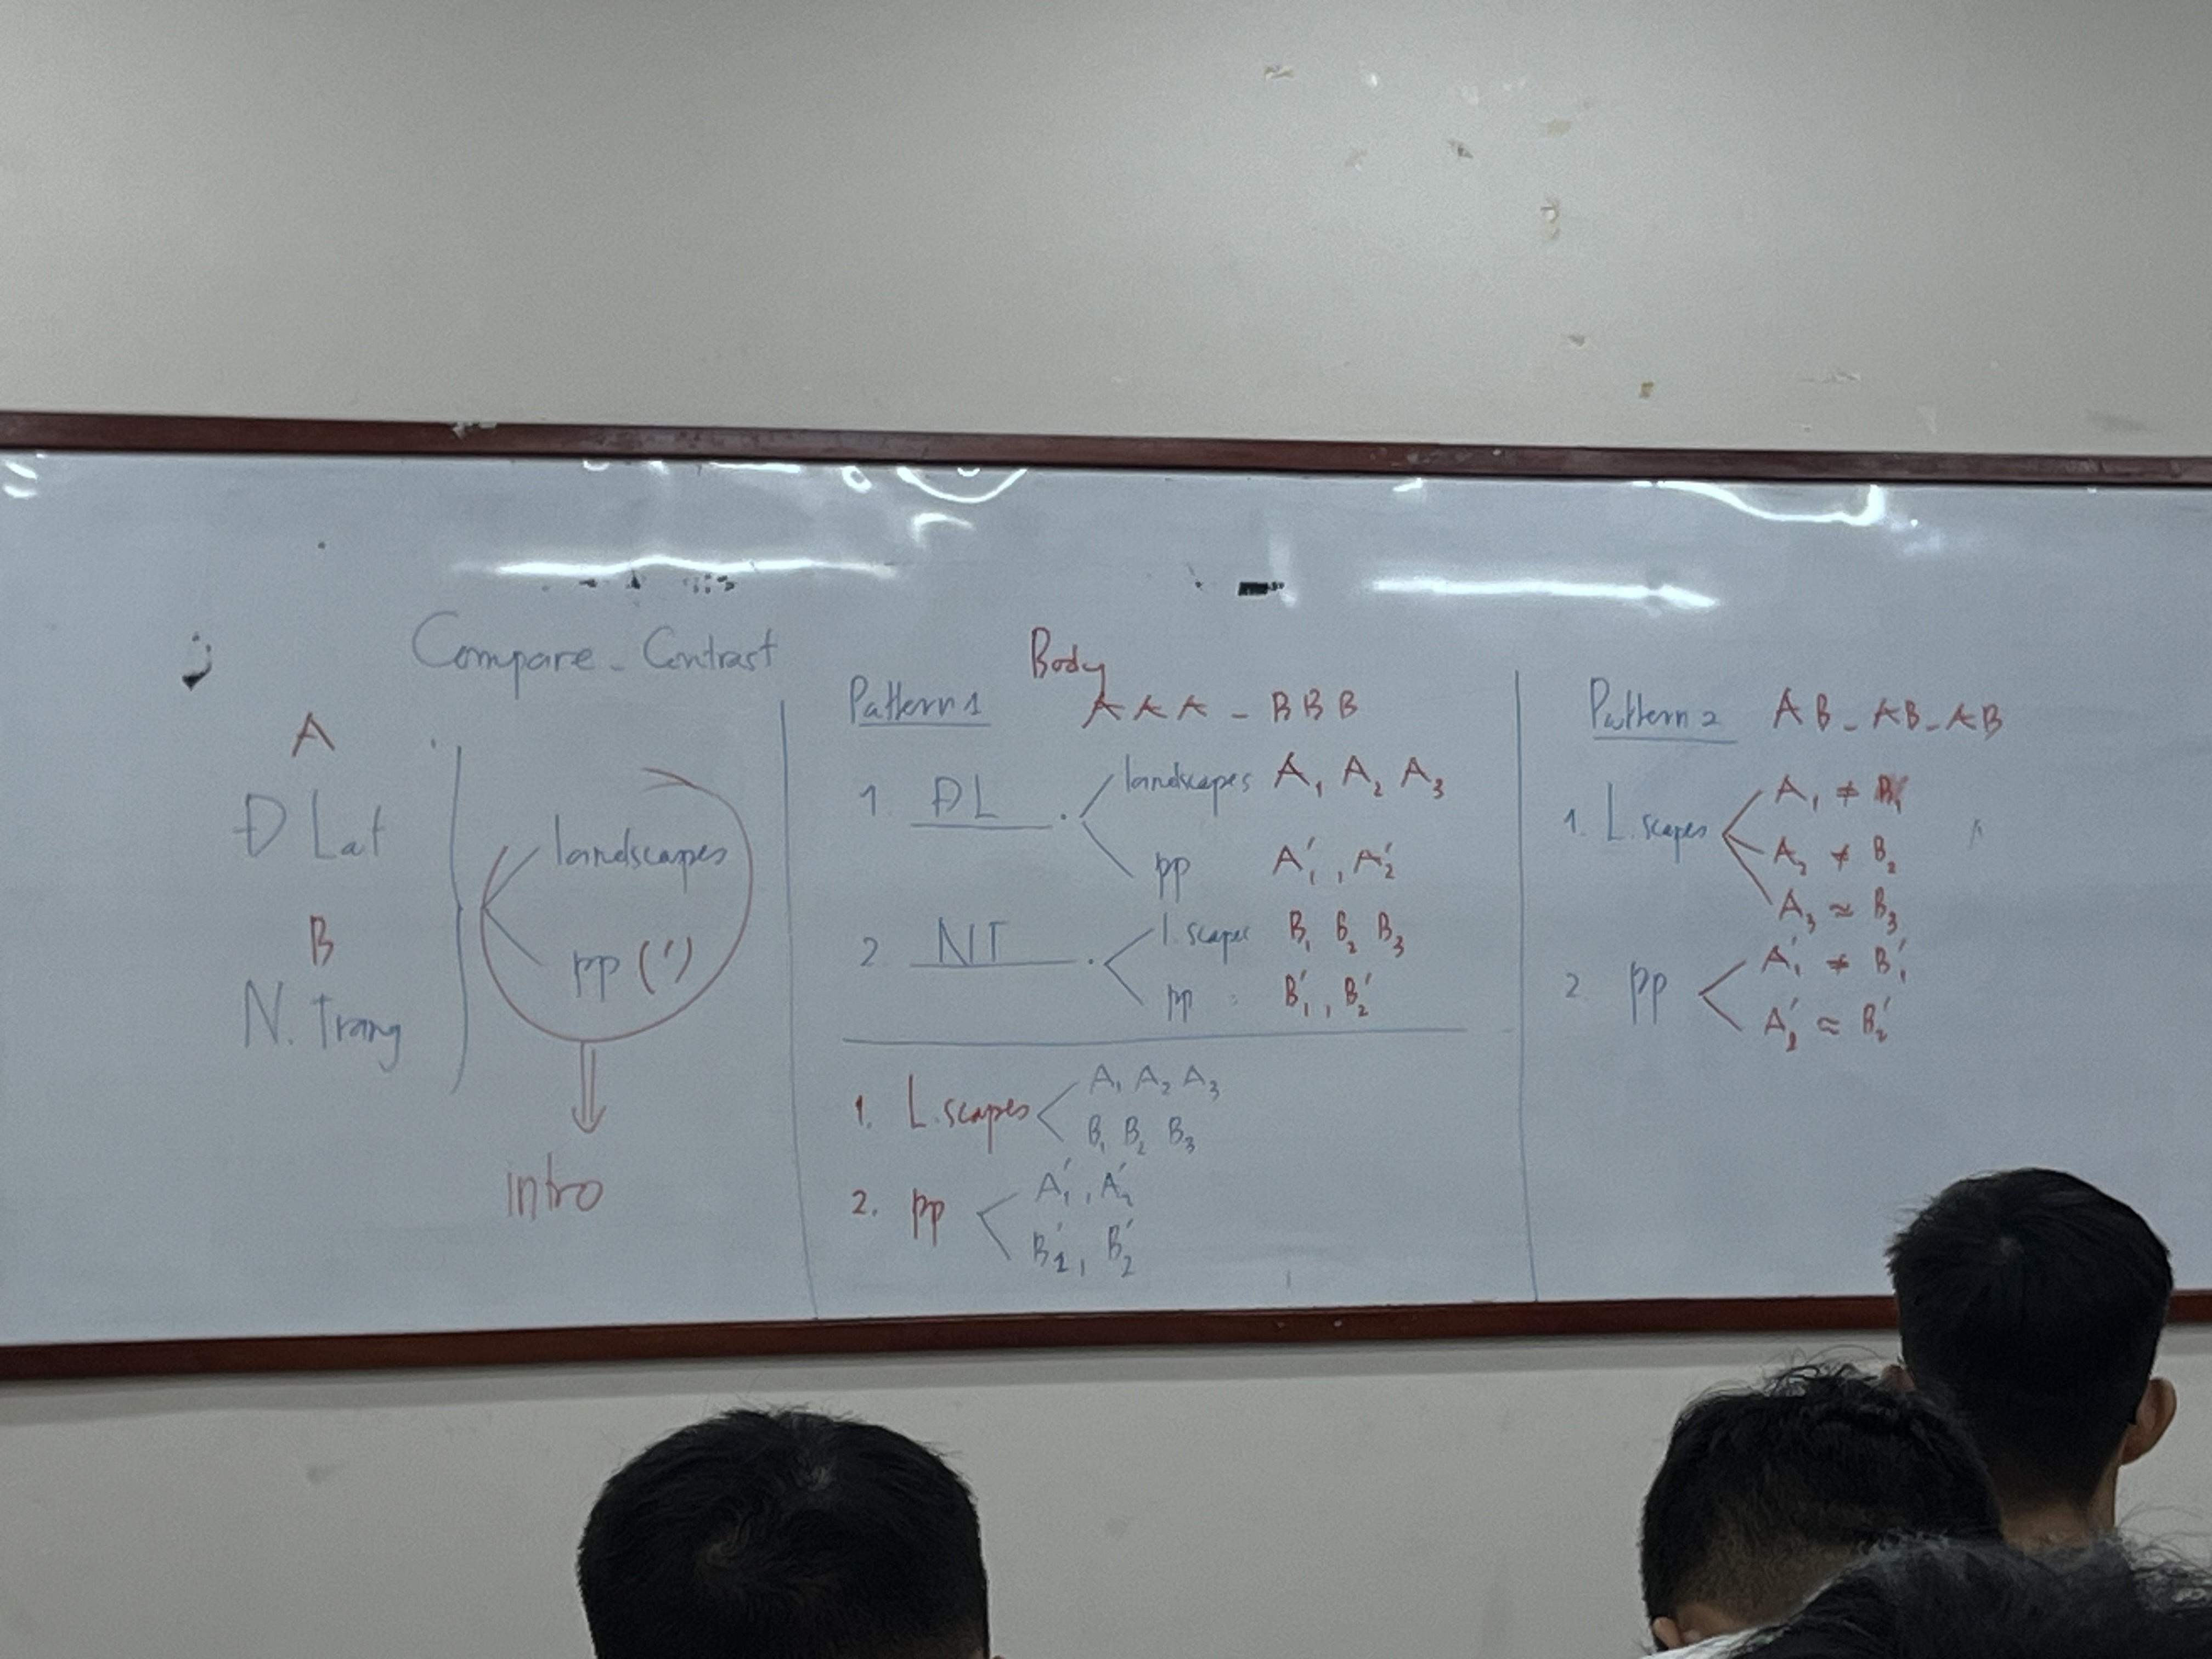 Compare - Contrast
A
Đ Lat
B
N. Trang
landscapes
pp (')
intro
Body
Pattern 1 A A A - B B B
1. ĐL
landscapes A₁ A₂ A₃
pp A₁', A₂'
2. NT
l.scapes B₁ B₂ B₃
pp : B₁', B₂'
1. L.scapes
A₁ A₂ A₃
B₁ B₂ B₃
2. pp
A₁', A₂'
B₁', B₂'
Pattern 2 AB - AB - AB
1. L.scapes
A₁ ≠ B₁
A₂ ≠ B₂
A₃ ≈ B₃
2. pp
A₁' ≠ B₁'
A₂' ≈ B₂'